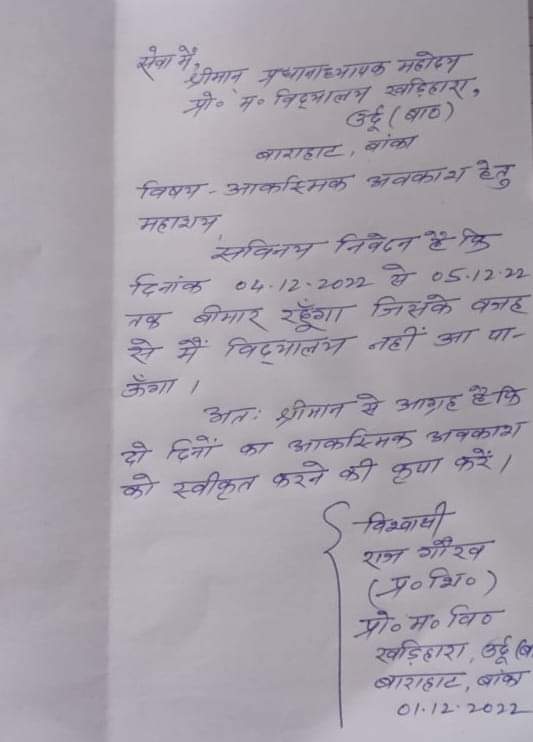 सेवा में,
श्रीमान प्रधानाध्यापक महोदय
प्रो० म० विद्यालय खड़िहारा,
उर्दू (बाठ)
बाराहाट, बांका
विषय - आकस्मिक अवकाश हेतु
महाशय,
सविनय निवेदन है कि
दिनांक 04.12.2022 से 05.12.22
तक बीमार रहूँगा जिसके वजह
से मैं विद्यालय नहीं आ पा-
ऊँगा।
अतः श्रीमान से आग्रह है कि
दो दिनों का आकस्मिक अवकाश
को स्वीकृत करने की कृपा करें।
विश्वासी
राज गौरव
(प्र० शि०)
प्रो० म० वि०
खड़िहारा, उर्दू (बा
बाराहाट, बांका
01.12.2022